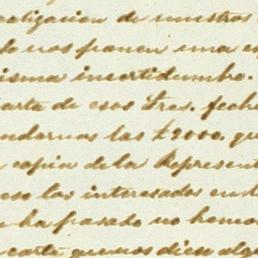 obligacion de nuestros
de nos ponen una es
misma incertidumbre.
carta de esos Sres. fecha
ndarnos las £2000. que
copia de la Represent
eso los interesados en la
ha pasado no hemos
carta que nos dice alg